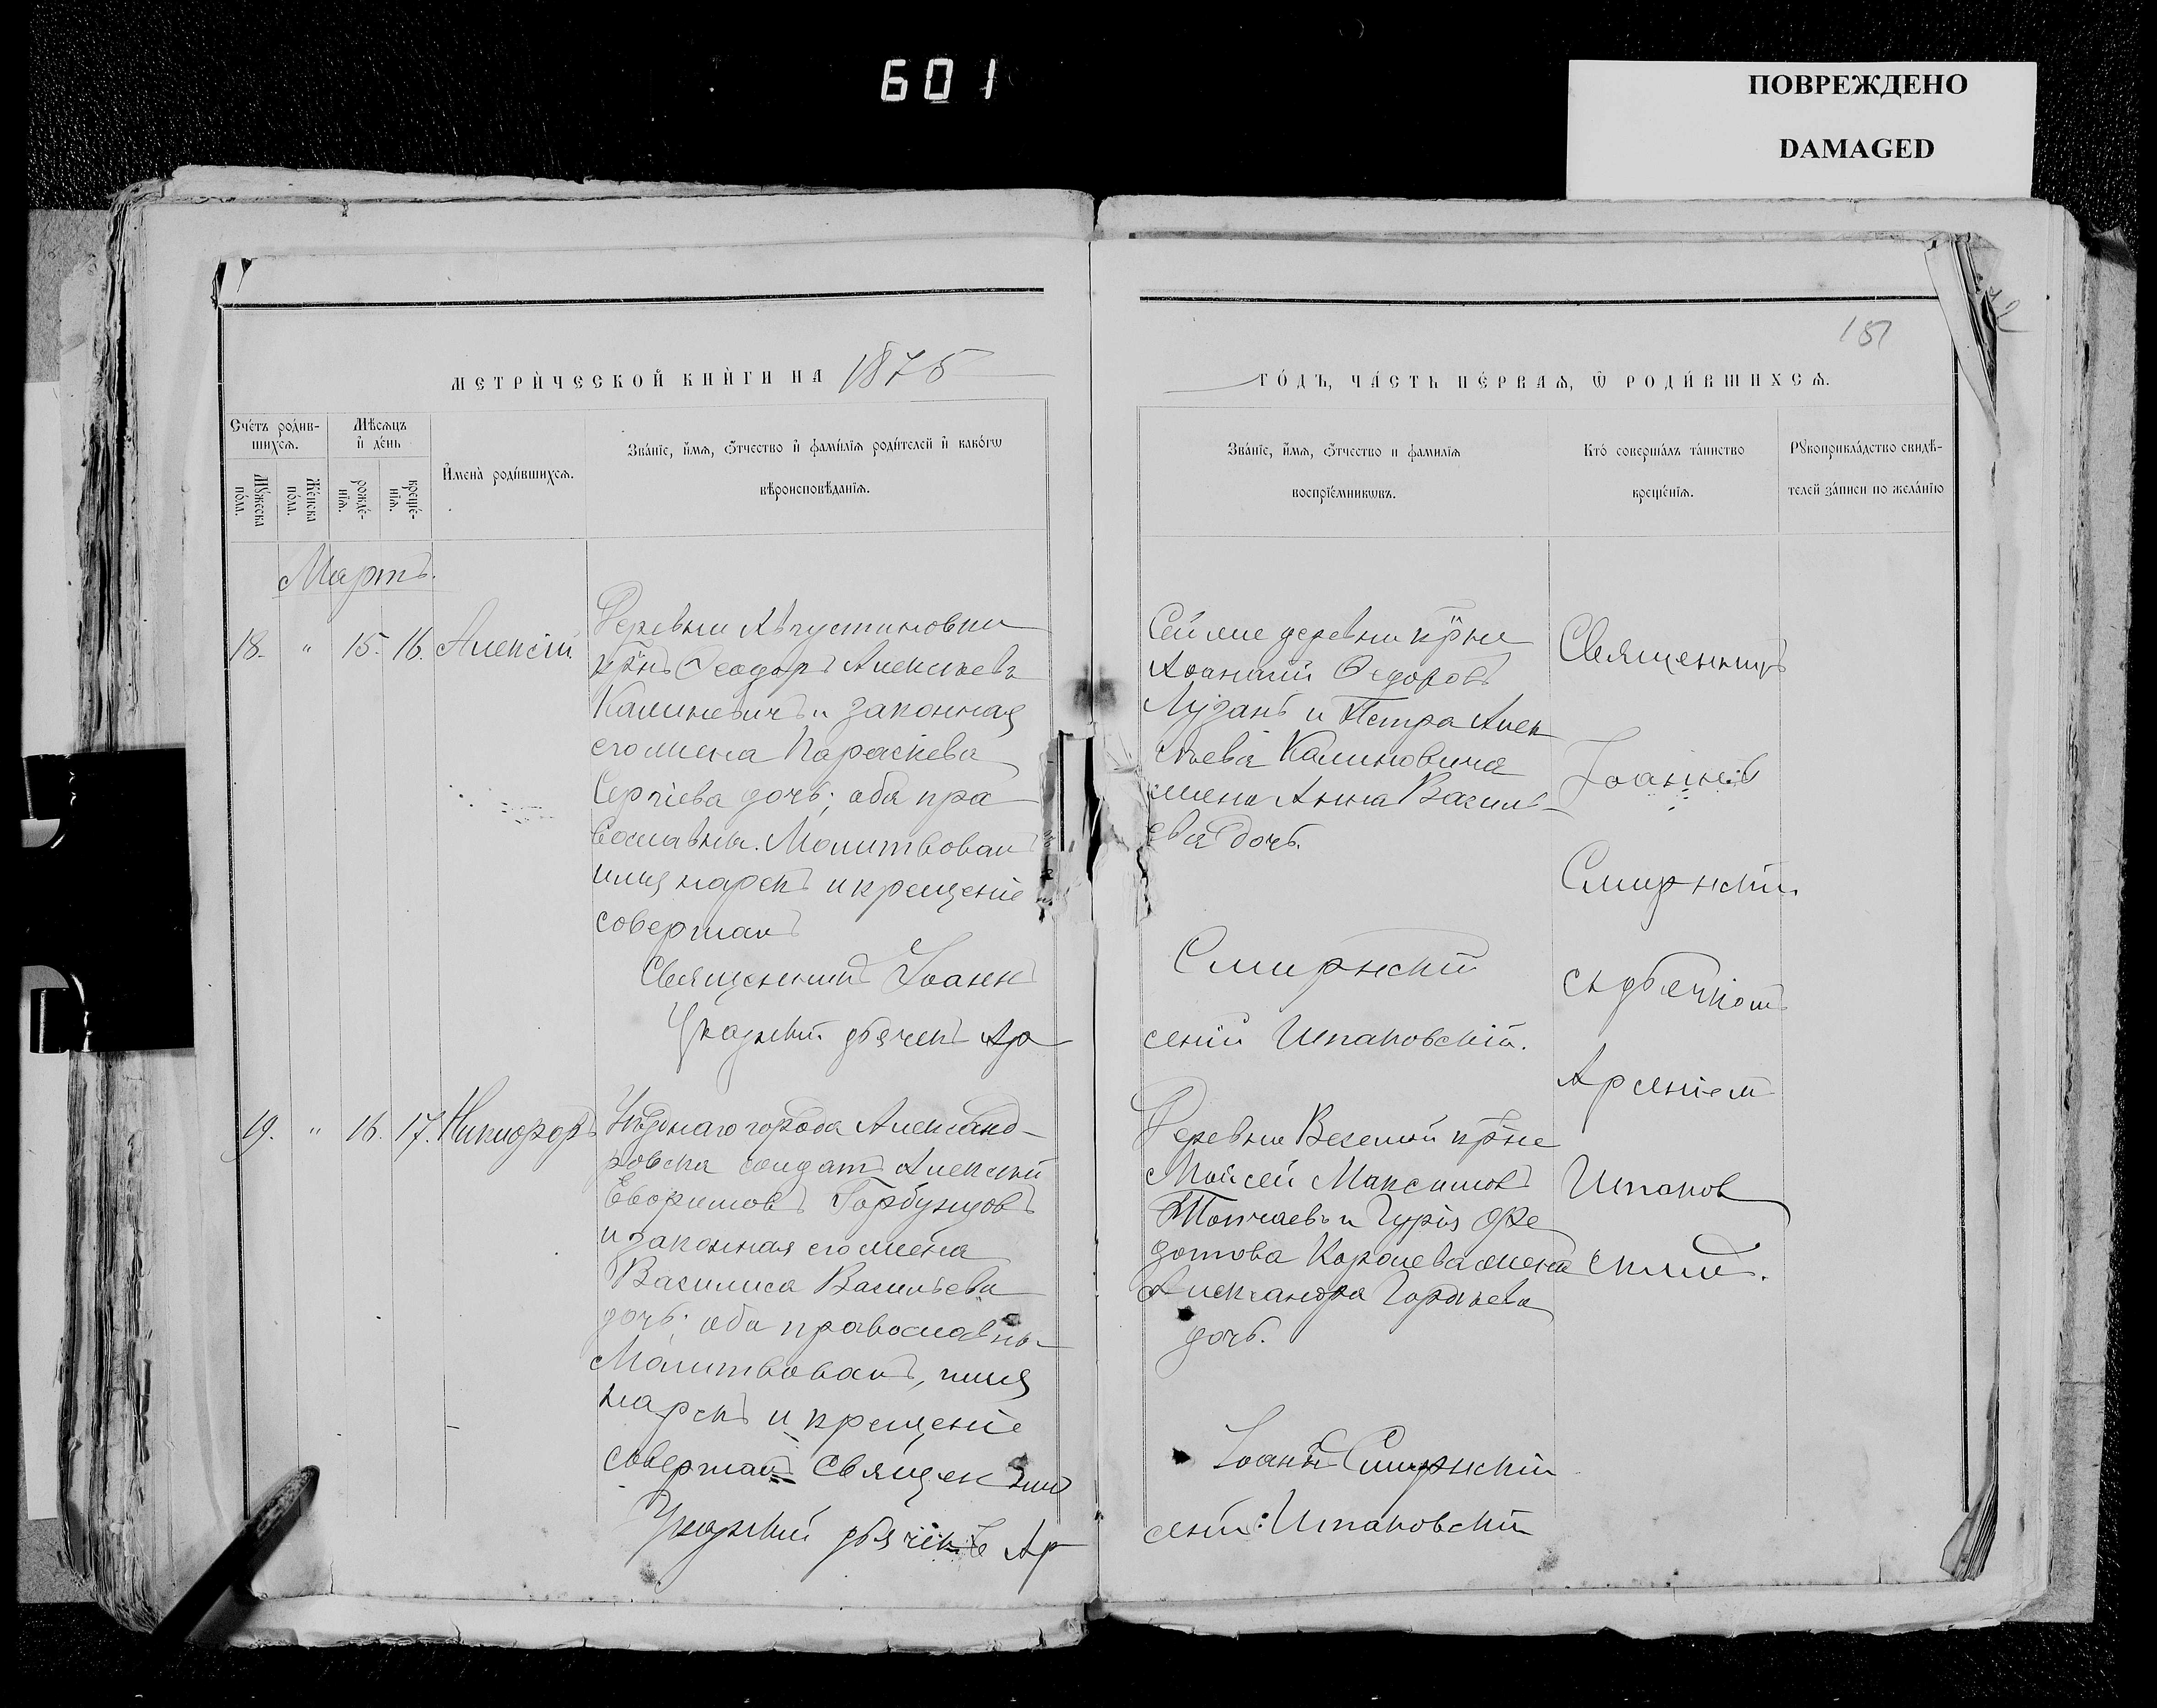 601
ПОВРЕЖДЕНО
DAMAGED
151
МЕТРИ́ЧЕСКОЙ КНИ́ГИ НА 1875
ГО́ДЪ, ЧА́СТЬ ПЕ́РВАЯ, Ѿ РОДИ́ВШИХСЯ.
Сче́тъ роди́в-
шихся.
Мѣсяцъ
и́ де́нь
Му́жеска по́ла.
Же́нска по́ла.
рожде́-нія.
креще́-нія.
И́мена̀ роди́вшихся.
Зва́ніе, и́мя, ѻ́тчество и́ фами́лія роди́телей и́ како́гѡ
вѣроисповѣ́данія.
Зва́ніе, и́мя, ѻ́тчество и фамилія
воспріе́мникѡвъ.
Кто́ соверша́лъ та́инство
креще́нія.
Рꙋкоприкла́дство свидѣ́-
телей за́писи по жела́нію
Мартъ.
18. " 15. 16. Алексій.
Деревни Августиновки
крнъ Ѳеодоръ Алексѣевъ
Калиневичъ и законная
его жена Параскева
Сергіева дочь; оба пра
вославны. Молитвовалъ
имя нарекъ и крещеніе
совершалъ
Священникъ Іоаннъ
Указный дьячекъ Ар
Сей же деревни крне
Федоровъ
Лузанъ и Петра Алек
сѣева Калиновича
жена Анна Василь
ева дочь.
Смирнскій
сеній Шпаковскій.
Священникъ
Іоаннъ
Смирнскій
съ дьячкомъ
Арсеніем
Шпаков
скимъ.
19. " 16. 17. Никифоръ
Уѣзднаго города Александ-
ровска солдатъ Алексѣй
Евфимовъ Горбунцовъ
и законная его жена
Василиса Васильева
дочь; оба православны
Молитвовалъ, имя
нарекъ и крещеніе
совершалъ Священникъ
Указный дьячекъ Ар
Деревни Веселой крне
Мойсей Максимовъ
и Гурія Ѳе
дотова Королева жена
Александра Гордѣева
дочь.
Іоаннъ Смирнскій
сеній Шпаковскій